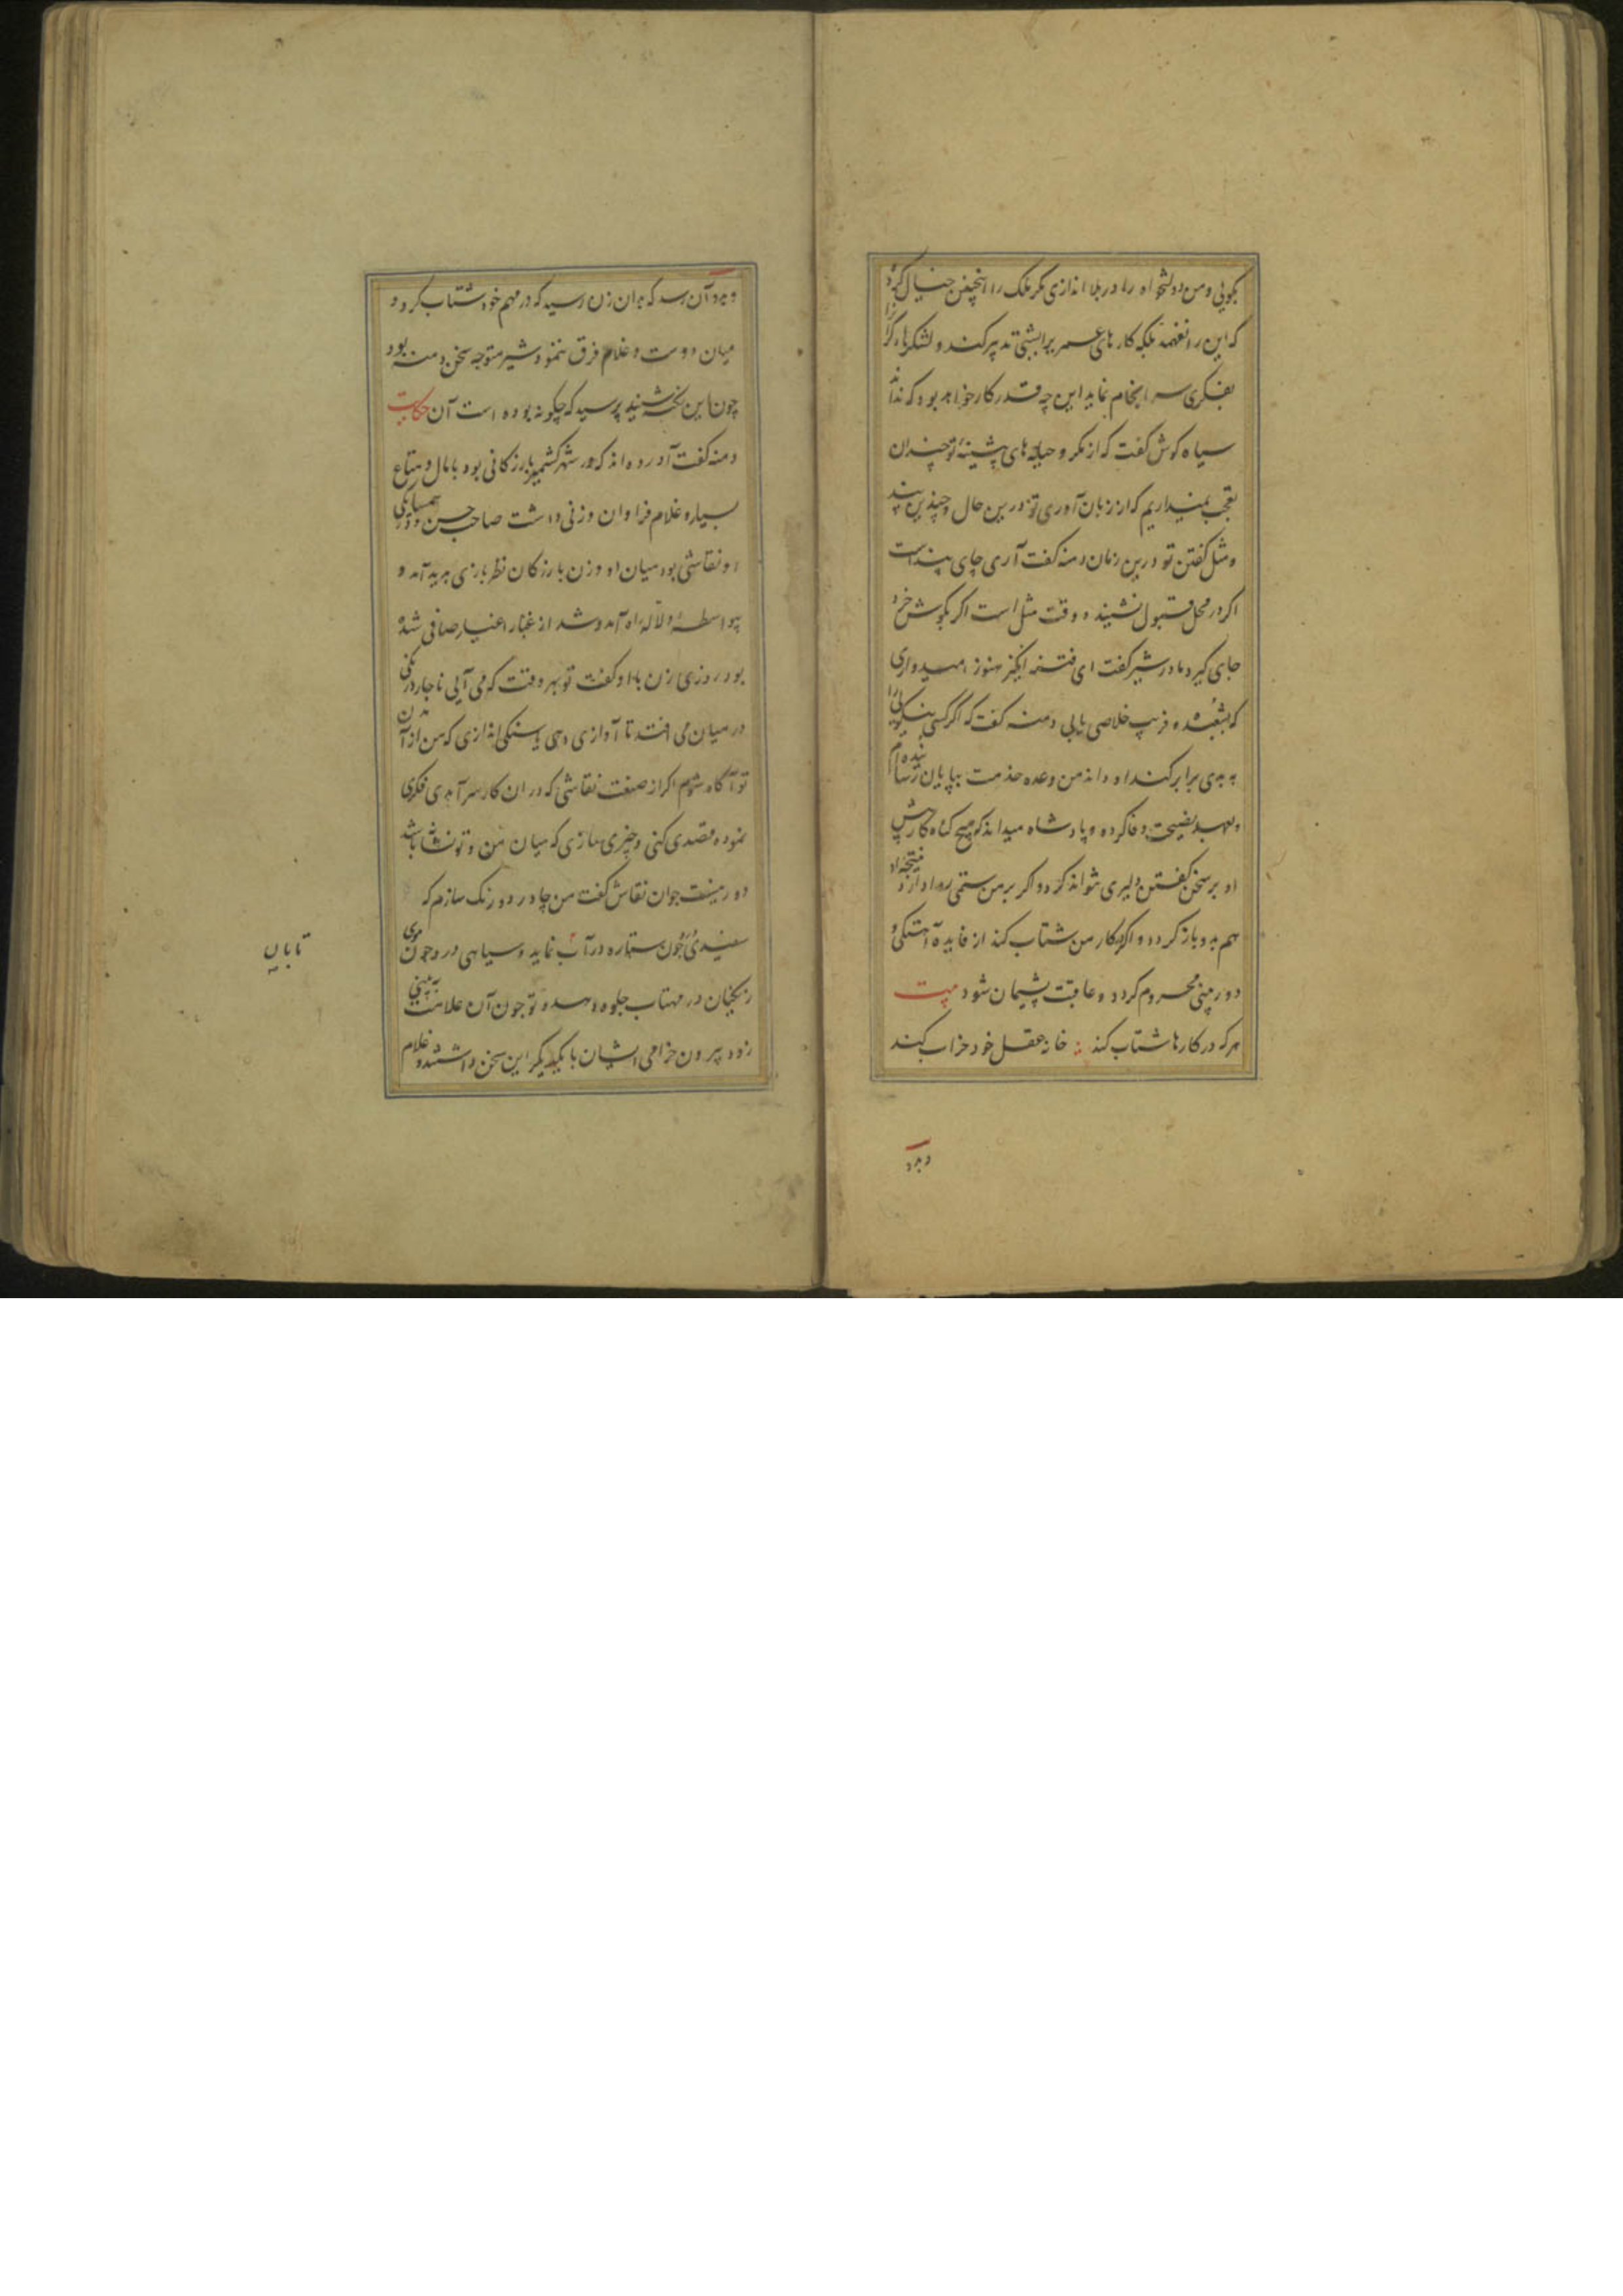 بگویی و من دولتخواه را در بلا اندازی مگر ملک را اینچنین خیال کرده
که این را نفهمد بلکه کارهای عمر برابستی تدبیر کند و لشکرها
بفکری سرانجام نماید این چه قدر کار خواهد بود که نداند
سیاه کوش گفت که از مکر و حیله های پیشینهٔ تو چندان
تعجب نمیداریم که از زبان آوری تو درین حال و چندین پند
و مثل گفتن تو درین زمان دمنه گفت آری جای پند است
اگر در محل قبول نشیند و وقت مثل است اگر بگوش خرد
جای گیرد مادر شیر گفت ای فتنه انگیز هنوز امیدواری
که بشعبده و فریب خلاصی یابی دمنه گفت که اگر کسی نیکویی را
به بدی برابر کند او داند من وعده خدمت بپایان رسانیده ام
و بعهد نصیحت وفا کرده و پادشاه میداند که هیچ گناه کار پیش
او بر سخن گفتن دلیری نتواند کرد و اگر بر من ستمی روا دارد نتیجه او
هم بدو باز گردد و اگر در کار من شتاب کند از فایده آهستگی و
دوربینی محروم گردد و عاقبت پشیمان شود بیت
هر که در کارها شتاب کند خانه عقل خود خراب کند
و بدو
و بدو آن رسد که بدان زن رسید که در مهم خود شتاب کرد و
میان دوست و غلام فرق ننمود شیر متوجه سخن دمنه بود
چون این نکته شنید پرسید که چگونه بوده است آن حکایت
دمنه گفت آورده اند که در شهر کشمیر بازرگانی بود با مال و متاع
بسیار و غلام فراوان و زنی داشت صاحب حسن و در همسایگی
او نقاشی بود میان او و زن بازرگان نظر بازی پدید آمد و
بیواسطهٔ دلاله راه آمد و شد از غبار اغیار صافی شده
بود روزی زن با او گفت تو بهر وقت که می آیی ناچار درنگی
در میان می افتد تا آوازی دهی یا سنگی اندازی که من از آمدن
تو آگاه شوم اگر از صنعت نقاشی که در ان کار سرآمدی فکری
نموده قصدی کنی و چیزی سازی که میان من و تو نشان باشد
دور نیست جوان نقاش گفت من چادر دو رنگ سازم که
سفیدی چون ستاره در آب نماید و سیاهی در و چون موی
زنگیان در مهتاب جلوه دهد و تو چون آن علامت به بینی
زود بیرون خرامی ایشان با یکدیگر این سخن داشتند و غلام